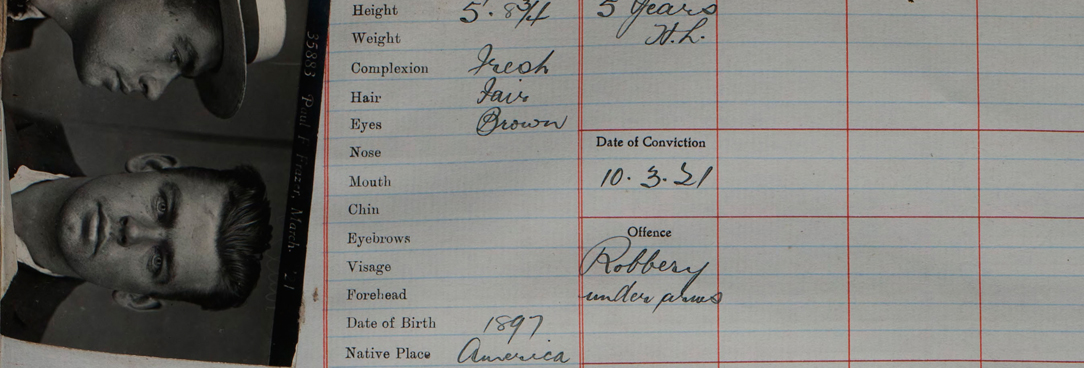 Height 5' 8 3/4 5 years
Weight H.L.
Complexion Fresh
Hair Fair
Eyes Brown
Nose Date of Conviction
Mouth 10. 3. 21
Chin
Eyebrows Offence
Visage Robbery
Forehead under arms
Date of Birth 1897
Native Place America
35883 Paul F. Frazer. March. 21